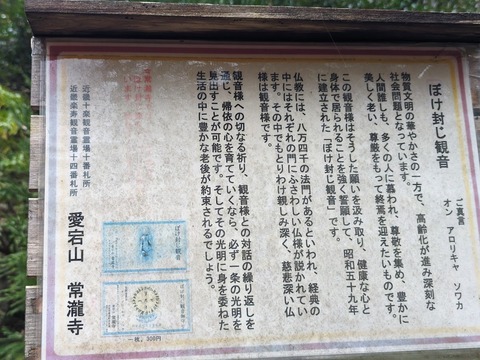 ぼけ封じ観音
ご真言
オン アロリキャ ソワカ
物質文明の華やかさの一方で、高齢化が進み深刻な
社会問題となっています。
人間誰しも、多くの人に慕われ、尊敬を集め、豊かに
美しく老い、尊厳をもって終焉を迎えたいものです。
この観音様はそうした願いを汲み取り、健康な心と
身体で居られることを強く誓願して、昭和五十九年
に建立された「ぼけ封じ観音」です。
仏教には、八万四千の法門があるといわれ、経典の
中にはそれぞれの門にふさわしい仏様が説かれてい
ます。その中でもとりわけ親しみ深く、慈悲深い仏
様は観音様です。
観音様への切なる祈り、観音様との対話の繰り返しを
通じ、帰依の心を育てていくなら、必ず一条の光明を
見出すことが可能です。そしてその光明に身を委ねた
生活の中に豊かな老後が約束されるでしょう。
ぼけ封じ観音
一枚、300円
近畿十楽観音霊場十番札所
近畿楽寿観音霊場十四番札所
愛宕山 常瀧寺